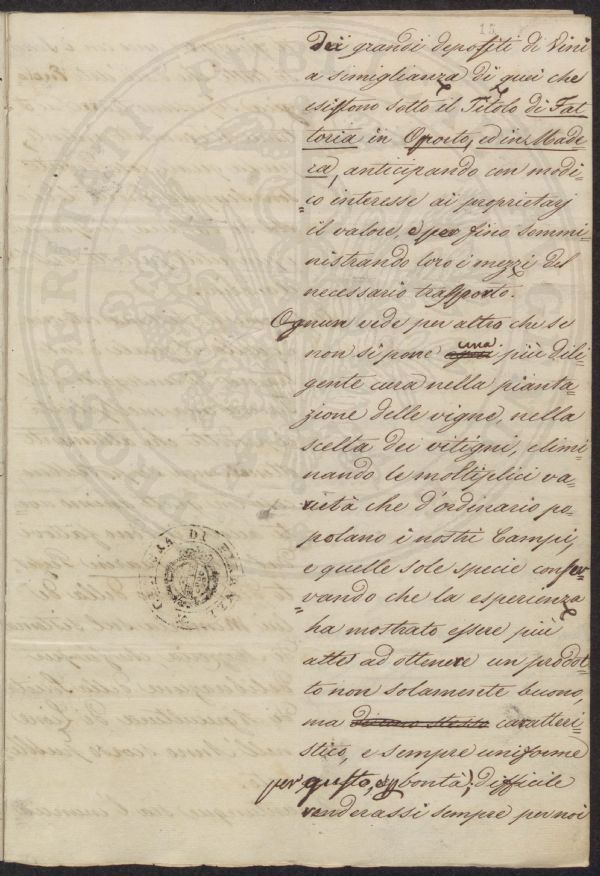 15
Dei grandi depositi di Vini
a simiglianza di quei che
esistono sotto il Titolo di Fat
toria in Oporto, ed in Made
ra, anticipando con modi=
=co interesse ai proprietarj
il valore, e per fino sommi
nistrando loro i mezzi del
necessario trasporto.
Ognun vede per altro che se
una
non si pone più dili
gente cura nella pianta
zione delle vigne, nella
scelta dei vitigni, elimi
nando le moltiplici va=
rietà che d'ordinario po=
polano i nostri Campi,
e quelle sole specie conser=
vando che la esperienza
ha mostrato essere più
atte ad ottenere un prodot=
to non solamente buono,
ma distinto stesso caratteri=
stico, e sempre uniforme
per gusto, e bontà; difficile
renderassi sempre per noi
PROSPERITATI PUBLICAE
DI FIRENZE